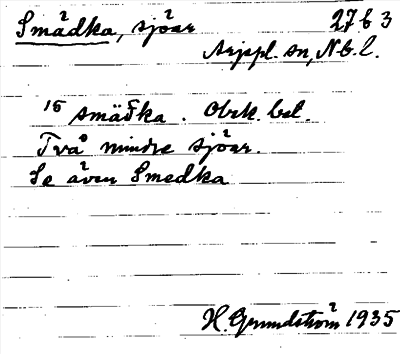 Smädka, sjöar 27 b 3
Arjepl. sn, Nb. l.
15 smäđka. Obek. bet.
Två mindre sjöar.
Se även Smedka
H. Grundström 1935